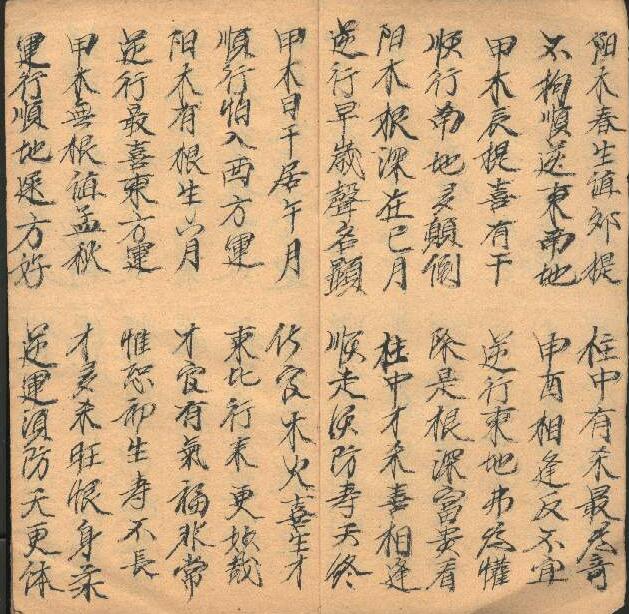 阳木春生值卯提
柱中有杀最为奇
不拘順逆東南地
申酉相逢反不宜
甲木辰提喜有干
逆行東地弗為懽
順行南地多顛倒
除是根深富贵看
阳木根深在巳月
柱中才杀喜相逢
逆行早歲聲名顯
順走須防寿夭終
甲木日干居午月
伤官木火喜生才
順行怕入西方運
東北行来更妙哉
阳木有根生六月
才官有氣福非常
逆行最喜東方運
惟恐初生寿不長
甲木無根值孟秋
才多杀旺恨身柔
運行順地方好
逆運須防夭更体